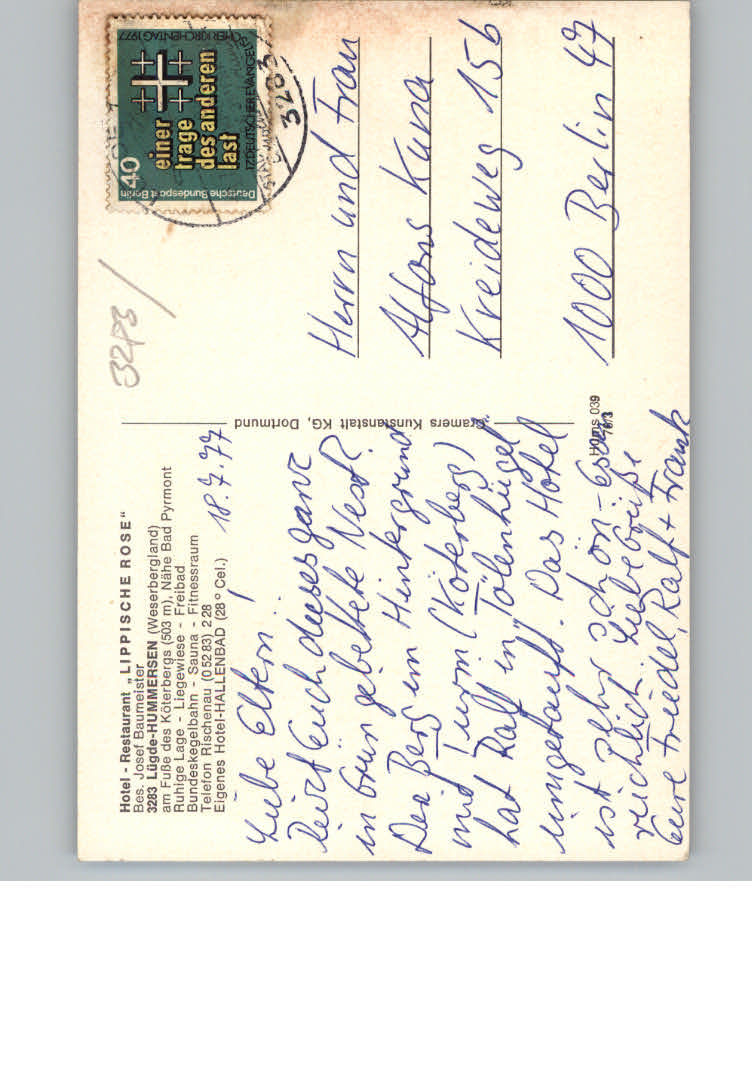 Hotel - Restaurant „LIPPISCHE ROSE“
Bes. Josef Baumeister
3283 Lügde-HUMMERSEN (Weserbergland)
am Fuße des Köterbergs (503 m), Nähe Bad Pyrmont
Ruhige Lage - Liegewiese - Freibad
Bundeskegelbahn - Sauna - Fitnessraum
Telefon Rischenau (0 52 83) 2 28
Eigenes Hotel-HALLENBAD (28° Cel.)
18.7.77
Liebe Eltern!
Seht Euch dieses ganz
in Grün gebettete Nest?
Der Berg im Hintergrund
mit Turm (Köterberg)
hat Ralf in „Tölenhügel“
umgetauft. Das Hotel
ist sehr schön - Essen
reichlich. Liebe Grüße
Eure Friedel, Ralf + Frank
Cramers Kunstanstalt KG, Dortmund
Hums 039
76/3
3283
40
Deutsche Bundespost Berlin
einer
trage
des anderen
last
17. DEUTSCHER EVANGELISCHER KIRCHENTAG 1977
3283
Herrn und Frau
Alfons Kuna
Kreideweg 156
1000 Berlin 47